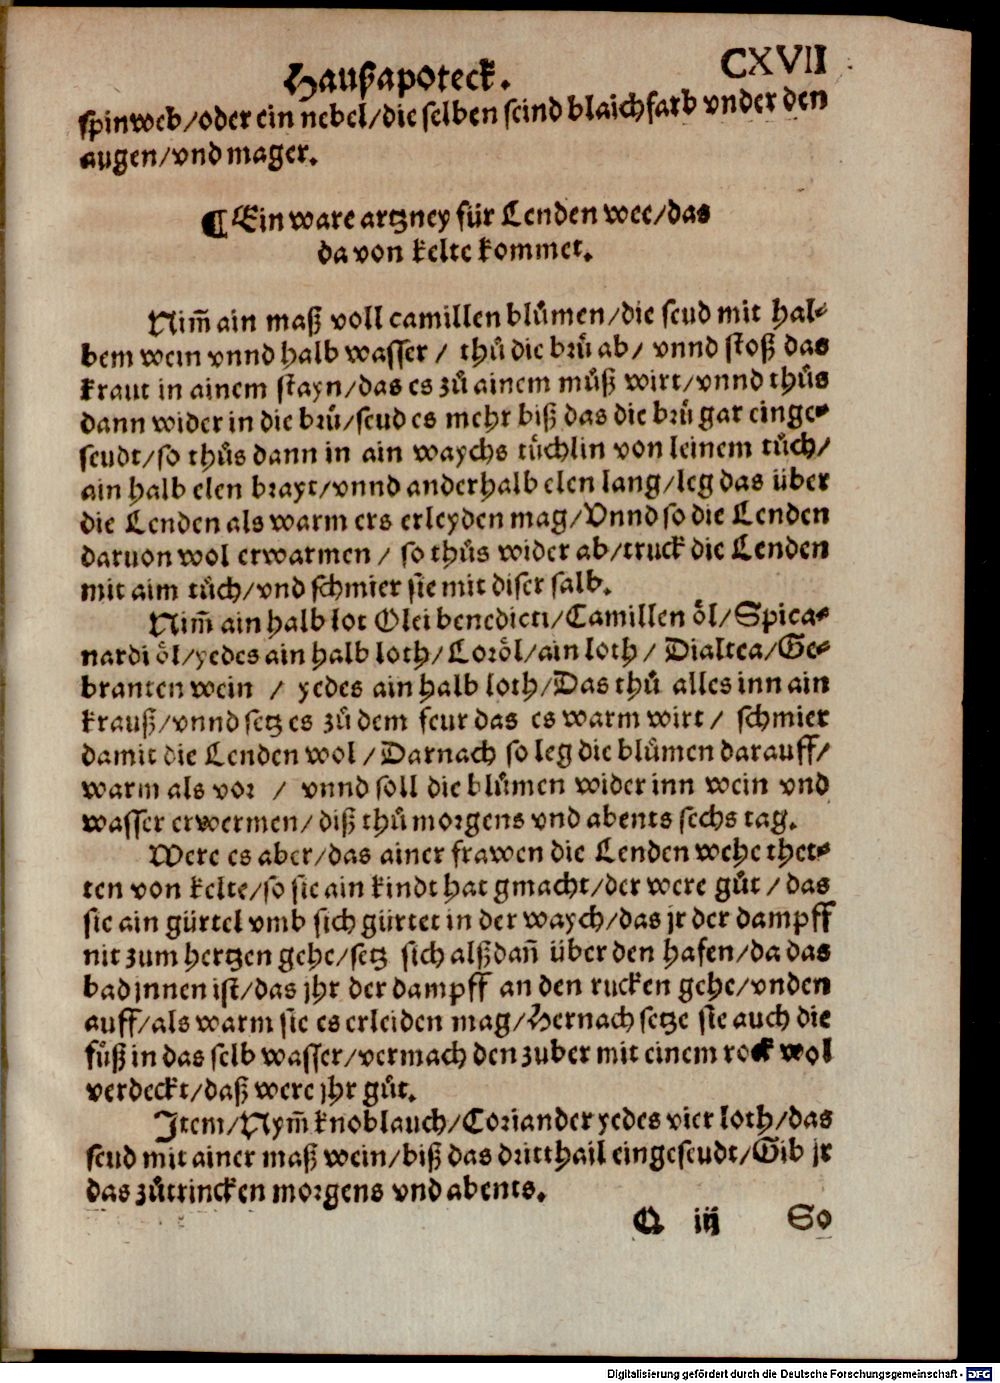 Haußapoteck. CXVII
spinweb/oder ein nebel/die selben seind blaichfarb vnder den
augen/vnd mager.
¶ Ein ware artzney für Lenden wee/das
da von kelte kommet.
Nim̃ ain maß voll camillen blůmen/die seud mit hal⸗
bem wein vnnd halb wasser / thů die brů ab/ vnnd stoß das
kraut in ainem stayn/das es zů ainem můß wirt/vnnd thůs
dann wider in die brů/seud es mehr biß das die brů gar einge⸗
seudt/so thůs dann in ain waychs tůchlin von leinem tůch/
ain halb elen brayt/vnnd anderhalb elen lang/leg das über
die Lenden als warm ers erleyden mag/Vnnd so die Lenden
daruon wol erwarmen / so thůs wider ab/truck die Lenden
mit aim tůch/vnd schmier sie mit diser salb.
Nim̃ ain halb lot Olei benedicti/Camillen ȯl/Spica⸗
nardi ȯl/yedes ain halb loth/Lorȯl/ain loth / Dialtea/Ge⸗
branten wein / yedes ain halb loth/Das thů alles inn ain
krauß/vnnd setz es zů dem feur das es warm wirt / schmier
damit die Lenden wol / Darnach so leg die blůmen darauff/
warm als vor / vnnd soll die blůmen wider inn wein vnd
wasser erwermen/ diß thů morgens vnd abents sechs tag.
Were es aber/das ainer frawen die Lenden wehe thet⸗
ten von kelte/so sie ain kindt hat gmacht/der were gůt / das
sie ain gürtel vmb sich gürtet in der waych/das jr der dampff
nit zum hertzen gehe/setz sich alßdañ über den hafen/da das
bad jnnen ist/das jhr der dampff an den rucken gehe/vnden
auff/als warm sie es erleiden mag/Hernach setze sie auch die
fůß in das selb wasser/vermach den zuber mit einem rock wol
verdeckt/daß were jhr gůt.
Item/Nym̃ knoblauch/Coriander yedes vier loth/das
seud mit ainer maß wein/biß das dritthail eingeseudt/Gib jr
das zůtrincken morgens vnd abents.
Q iij So
Digitalisierung gefördert durch die Deutsche Forschungsgemeinschaft - DFG